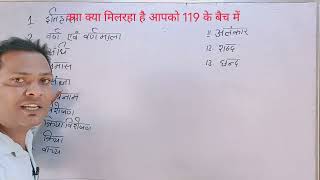 क्या क्या मिलरहा है आपको 119 के बैच में
1. इतिहास
2. वर्ण एवं वर्ण माला
संधि
समास
विशेषण
क्रिया विशेषण
क्रिया
वाच्य
11. अलंकार
12. शब्द
13. छन्द